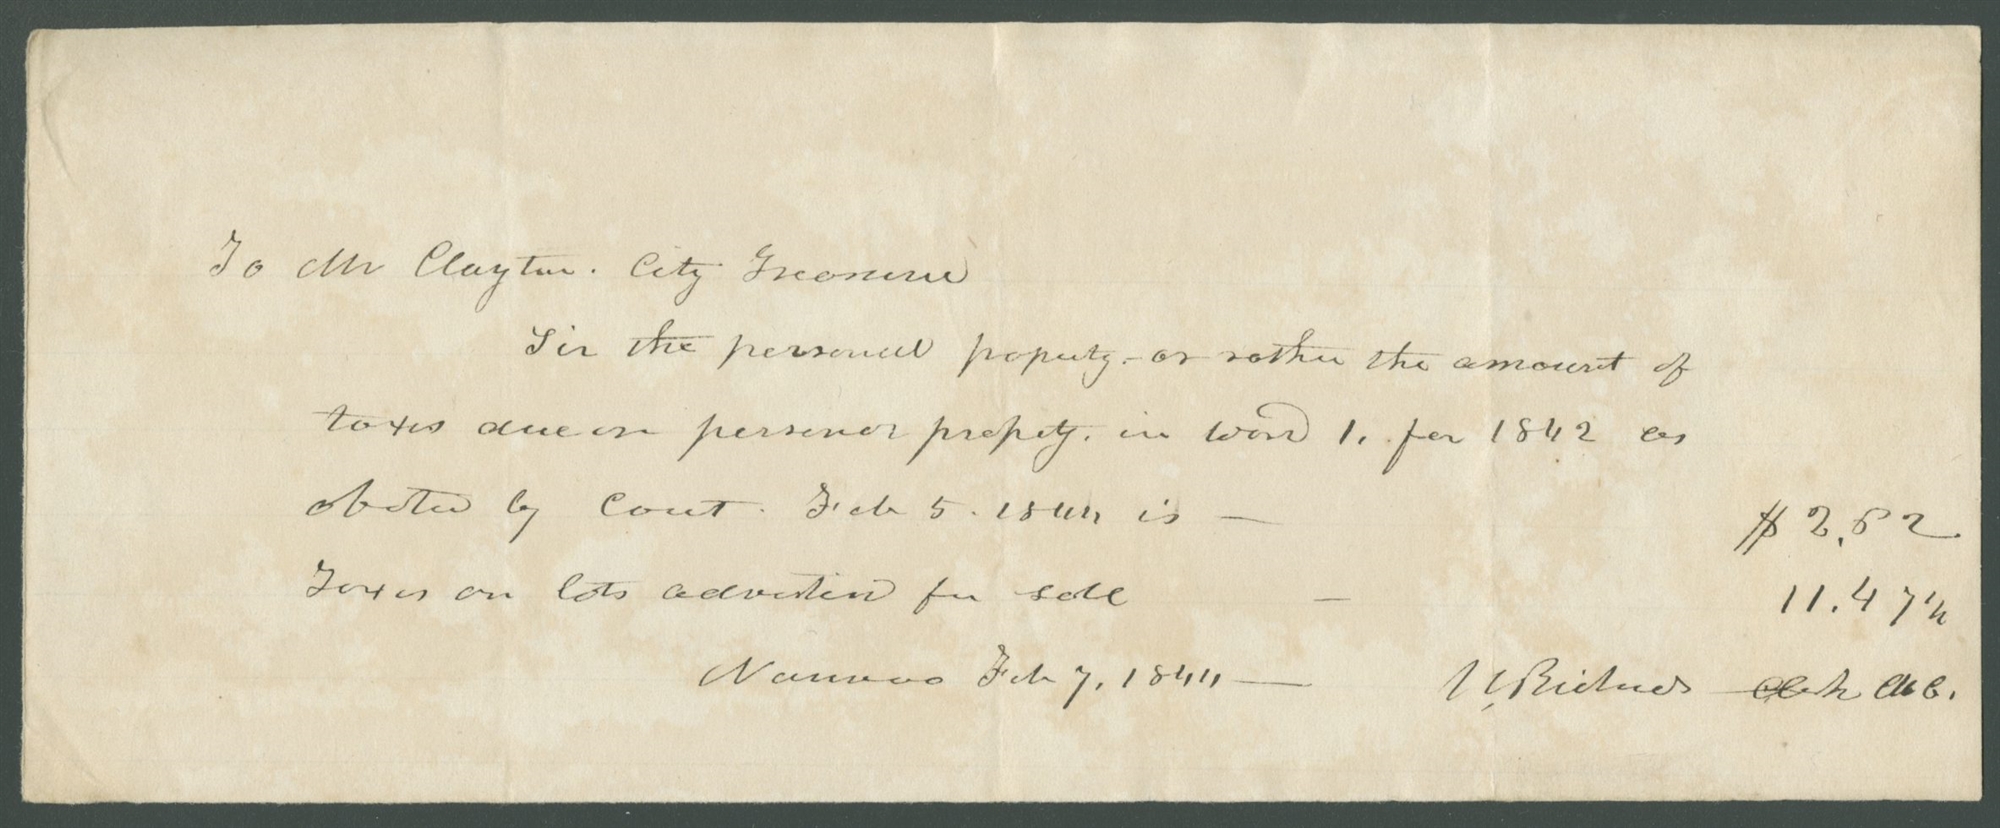 To Mr Clayton. City Treasurer
Sir the personal property - or rather the amount of
taxes due on personal property. in Ward 1. for 1842 as
abated by Court. Feb 5. 1844 is — $2.52
Taxes on lots advertised for sale — 11.47½
Nauvoo Feb 7, 1844 — W. Richards Clerk M C.